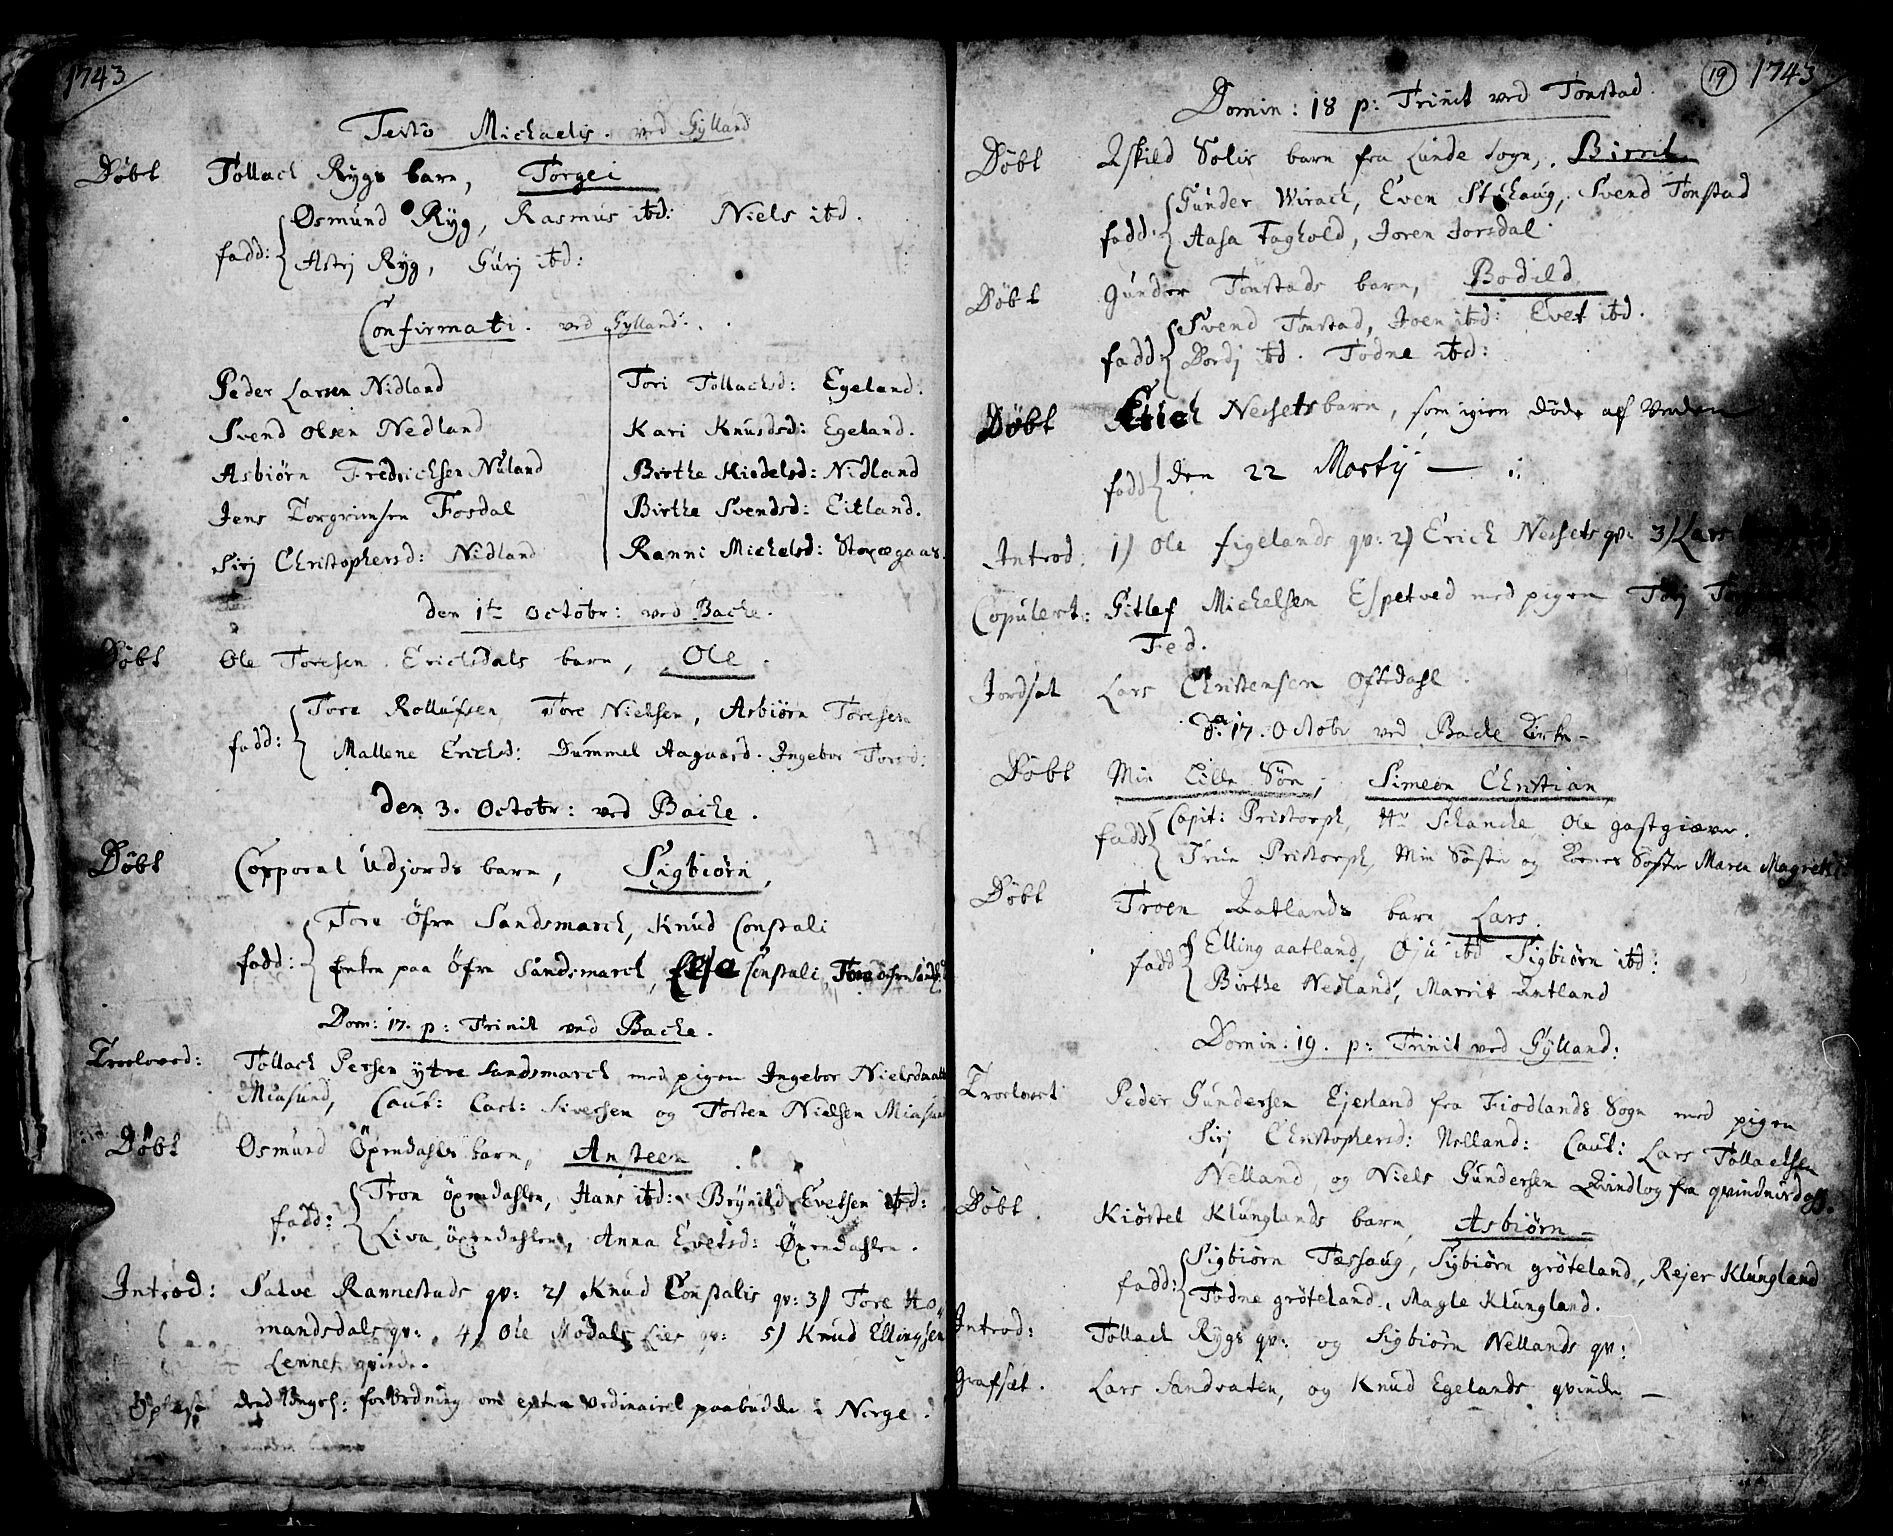 1743
Festo Michaelis. ved Gylland
Döbt Tollach Rygs barn, Torgei
Osmund Ryg, Rasmus ibd: Niels ibd.
fadd: Astrj Ryg, Gurj ibd:
Confirmati. ved Gylland.
Peder Larsen Nidland
Svend Olsen Nedland
Asbiörn Fredrichsen Nuland
Jens Torgrimsen Fosdal
Sirj Christophersd: Nidland
Tori Tollachsd: Egeland.
Kari Knudsd: Egeland.
Birthe Kieldsd: Nidland
Birthe Svendsd: Eitland.
Ranni Michelsd: Storægaas.
den 1te Octobr: ved Bache.
Döbt Ole Toresen Erichsdals barn, Ole.
Tore Rollufsen, Tore Nielsen, Asbiörn Toresen
fadd: Mallene Erichsd: Dummel Aagaard. Ingebor Torsd:
den 3. Octobr: ved Bache.
Döbt Corporal Udjords barn, Sigbiörn,
Tore Öfre Sandsmarch, Knud Constali
fadd: Enken paa Öfre Sandsmarch, Else Constali, Tore
Dom: 17. p: Trinit ved Bache.
Troeloved: Tollach Persen ytre Sandsmarch med pigen Ingebor Nielsdaatt
Miasund, Caut: Carl: Siversen og Tosten Nielsen Miasund
Döbt Osmund Öpendahls barn, Anteen
Tron Öpendahlen, Hans ibd: Brynild Evetsen ibd:
fadd: Liva Öpendahlen, Anna Evetsd: Öpendahlen.
Introd: Salve Rannestads qv: 2) Knud Constalis qv: 3) Tore Ho-
mandsdals qv: 4) Ole Modals Lies qv: 5) Knud Ellingsen
Lennes qvinde.
Oplæst dend Kongel: forordning om extra ordinairel paabudde i Norge.
19 1743
Domin: 18 p: Trinit ved Tonstad.
Döbt Askild Solis barn fra Lunde sogn, Birrit
Gunder Wirach, Even Stichaug, Svend Tonstad
fadd: Aasa Faghold, Joren Jorsdal.
Döbt Gunder Tonstads barn, Bodild
Svend Tonstad, Joen ibd: Evet ibd.
fadd: Bordj ibd. Todne ibd:
Döbt Erich Nessets barn, som igien döde af Verden
fadd den 22 Mostij — i:
Introd: 1) Ole figelands qv: 2) Erich Nessets qv: 3) Lars
Copulert: Gitlef Michelsen Espetved med pigen Torj
Fed.
Jordsat Lars Christensen Oftedahl.
d: 17. Octobr ved Bache Kirke –
Döbt Min Lille Sön, Simeon Christian
Capit: Pristorph, Hr Schancke, Ole gastgiæver.
fadd Trine Pristorph, Min Söster og Kones Söster Maren Magrethe
Döbt Troen Aatlands barn Lars.
Elling aatland, Oju ibd Sigbiörn ibd:
fadd Birthe Nedland, Marrit Aatland
Domin: 19. p: Trinit ved Gylland:
Troelovet Peder Gundersen Ejesland fra Fiodlands Sogn med pigen
Sirj Christophersd: Nelland: Caut: Lars Tollachsen
Nelland, og Niels Gundersen Qvindlog fra qvindnirdahl.
Döbt Kiöstel Klunglands barn, Asbiörn –
Sigbiörn Tæssaug, Sigbiörn gröteland, Rejer Klungland
fadd: Todne gröteland, Magle Klungland.
Introd: Tollach Rygs qv: og Sigbiörn Nellands qv:
Grafsæt. Lars Sandvaten, og Knud Egelands qvinde —